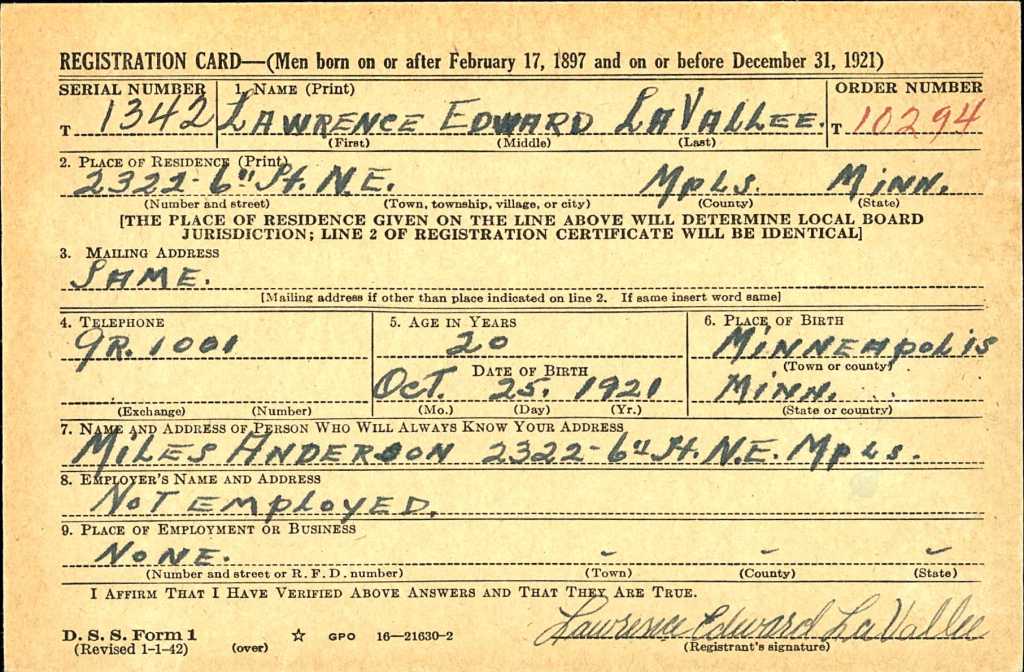 REGISTRATION CARD—(Men born on or after February 17, 1897 and on or before December 31, 1921)
SERIAL NUMBER 1. NAME (Print) ORDER NUMBER
T 1342 LAWRENCE EDWARD LAVALLEE. T 10294
(First) (Middle) (Last)
2. PLACE OF RESIDENCE (Print)
2322-6th St. N.E. Mpls. Minn.
(Number and street) (Town, township, village, or city) (County) (State)
[THE PLACE OF RESIDENCE GIVEN ON THE LINE ABOVE WILL DETERMINE LOCAL BOARD
JURISDICTION; LINE 2 OF REGISTRATION CERTIFICATE WILL BE IDENTICAL]
3. MAILING ADDRESS
SAME.
[Mailing address if other than place indicated on line 2. If same insert word same]
4. TELEPHONE 5. AGE IN YEARS 6. PLACE OF BIRTH
GR. 1001 20 MINNEAPOLIS
(Town or county)
DATE OF BIRTH
OCT. 25. 1921 MINN.
(Exchange) (Number) (Mo.) (Day) (Yr.) (State or country)
7. NAME AND ADDRESS OF PERSON WHO WILL ALWAYS KNOW YOUR ADDRESS
MILES ANDERSON 2322-6th St. N.E. Mpls.
8. EMPLOYER'S NAME AND ADDRESS
NOT EMPLOYED.
9. PLACE OF EMPLOYMENT OR BUSINESS
NONE. - - -
(Number and street or R. F. D. number) (Town) (County) (State)
I AFFIRM THAT I HAVE VERIFIED ABOVE ANSWERS AND THAT THEY ARE TRUE.
Lawrence Edward LaVallee
D. S. S. Form 1 ☆ GPO 16—21630-2 (Registrant's signature)
(Revised 1-1-42) (over)